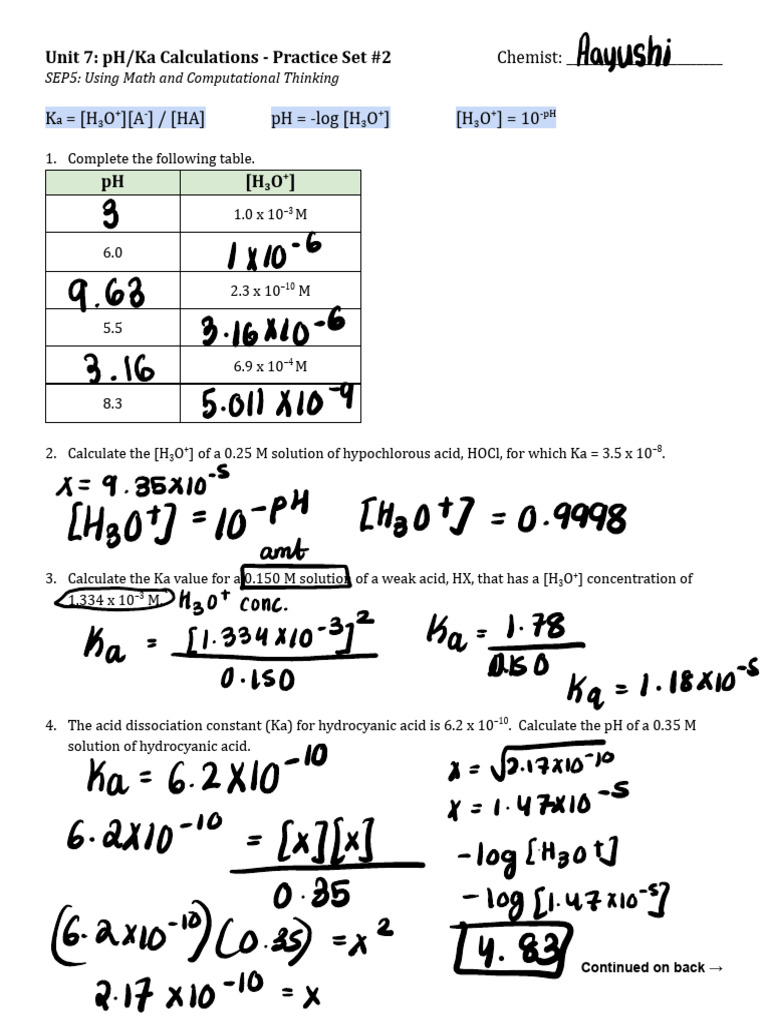 Unit 7: pH/Ka Calculations - Practice Set #2 Chemist: Aayushi
SEP5: Using Math and Computational Thinking
Ka = [H₃O⁺][A⁻] / [HA] pH = -log [H₃O⁺] [H₃O⁺] = 10⁻ᵖᴴ
1. Complete the following table.
pH [H₃O⁺]
3 1.0 x 10⁻³ M
6.0 1 x 10⁻⁶
9.63 2.3 x 10⁻¹⁰ M
5.5 3.16 x 10⁻⁶
3.16 6.9 x 10⁻⁴ M
8.3 5.011 x 10⁻⁹
2. Calculate the [H₃O⁺] of a 0.25 M solution of hypochlorous acid, HOCl, for which Ka = 3.5 x 10⁻⁸.
x = 9.35x10⁻⁵
[H₃O⁺] = 10⁻ᵖᴴ [H₃O⁺] = 0.9998
amt
3. Calculate the Ka value for a 0.150 M solution of a weak acid, HX, that has a [H₃O⁺] concentration of
1.334 x 10⁻³ M. H₃O⁺ conc.
Ka = [1.334 x10⁻³]² Ka = 1.78
0.150 0.150
Ka = 1.18x10⁻⁵
4. The acid dissociation constant (Ka) for hydrocyanic acid is 6.2 x 10⁻¹⁰. Calculate the pH of a 0.35 M
solution of hydrocyanic acid.
Ka = 6.2x10⁻¹⁰
6.2x10⁻¹⁰ = [x][x]
0.35
(6.2x10⁻¹⁰)(0.35) = x²
2.17 x10⁻¹⁰ = x
x = √2.17x10⁻¹⁰
x = 1.47x10⁻⁵
-log [H₃O⁺]
-log [1.47x10⁻⁵]
4.83
Continued on back →